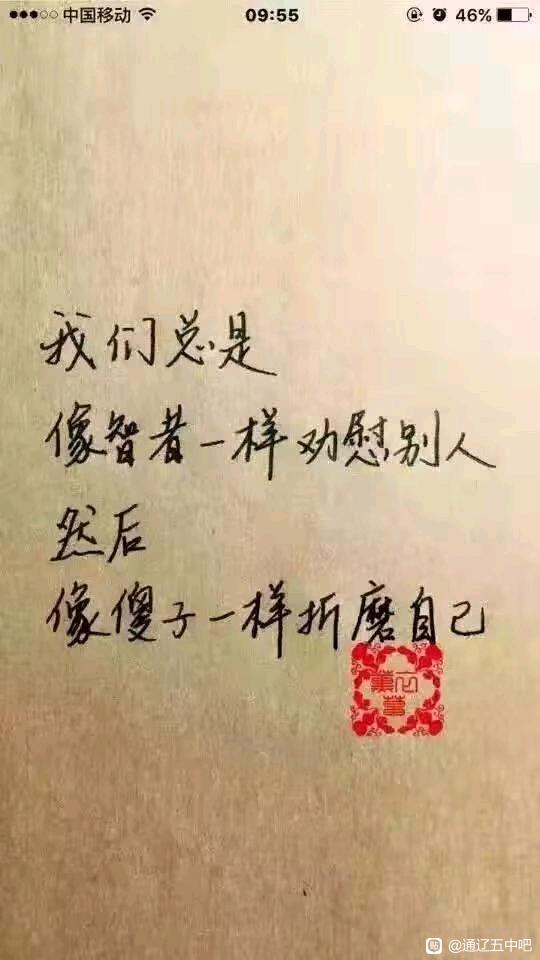 中国移动 09:55 46%
我们总是
像智者一样劝慰别人
然后
像傻子一样折磨自己
@通辽五中吧